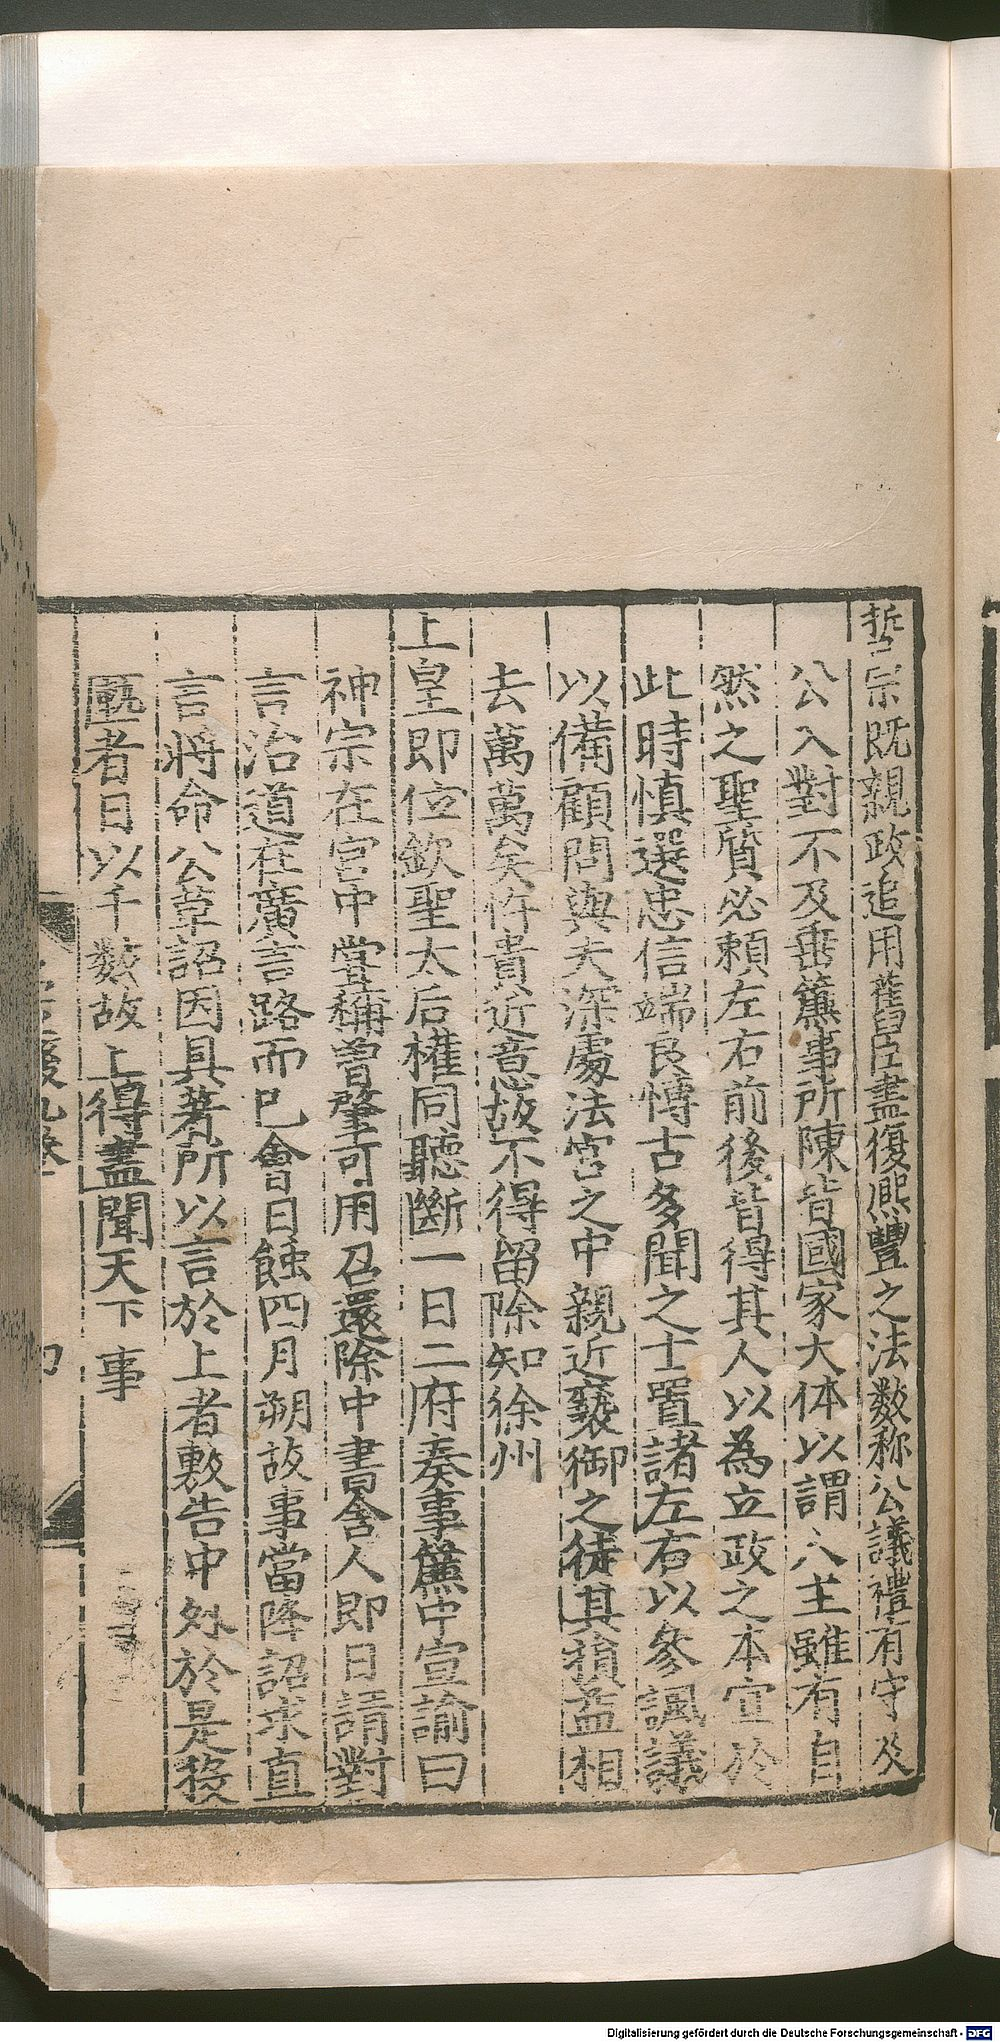 哲宗既親政追用舊臣盡復熈豐之法数称公議禮有守及
公入對不及垂簾事所陳皆國家大体以謂人主雖有自
然之聖質必頼左右前後皆得其人以為立政之本宜於
此時慎選忠信端良愽古多聞之士置諸左右以參諷議
以備顧問與夫深處法宮之中親近褻御之徒其損益相
去萬萬矣忤貴近意故不得留除知徐州
上皇即位欽聖太后權同聽斷一日二府奏事簾中宣諭曰
神宗在宮中甞稱曾肇可用召還除中書舍人即日請對
言治道在廣言路而巳會日蝕四月朔故事當降詔求直
言將命公草詔因具著所以言於上者敷告中外於是投
匭者日以千數故 上得盡聞天下 事
Digitalisierung gefördert durch die Deutsche Forschungsgemeinschaft - DFG